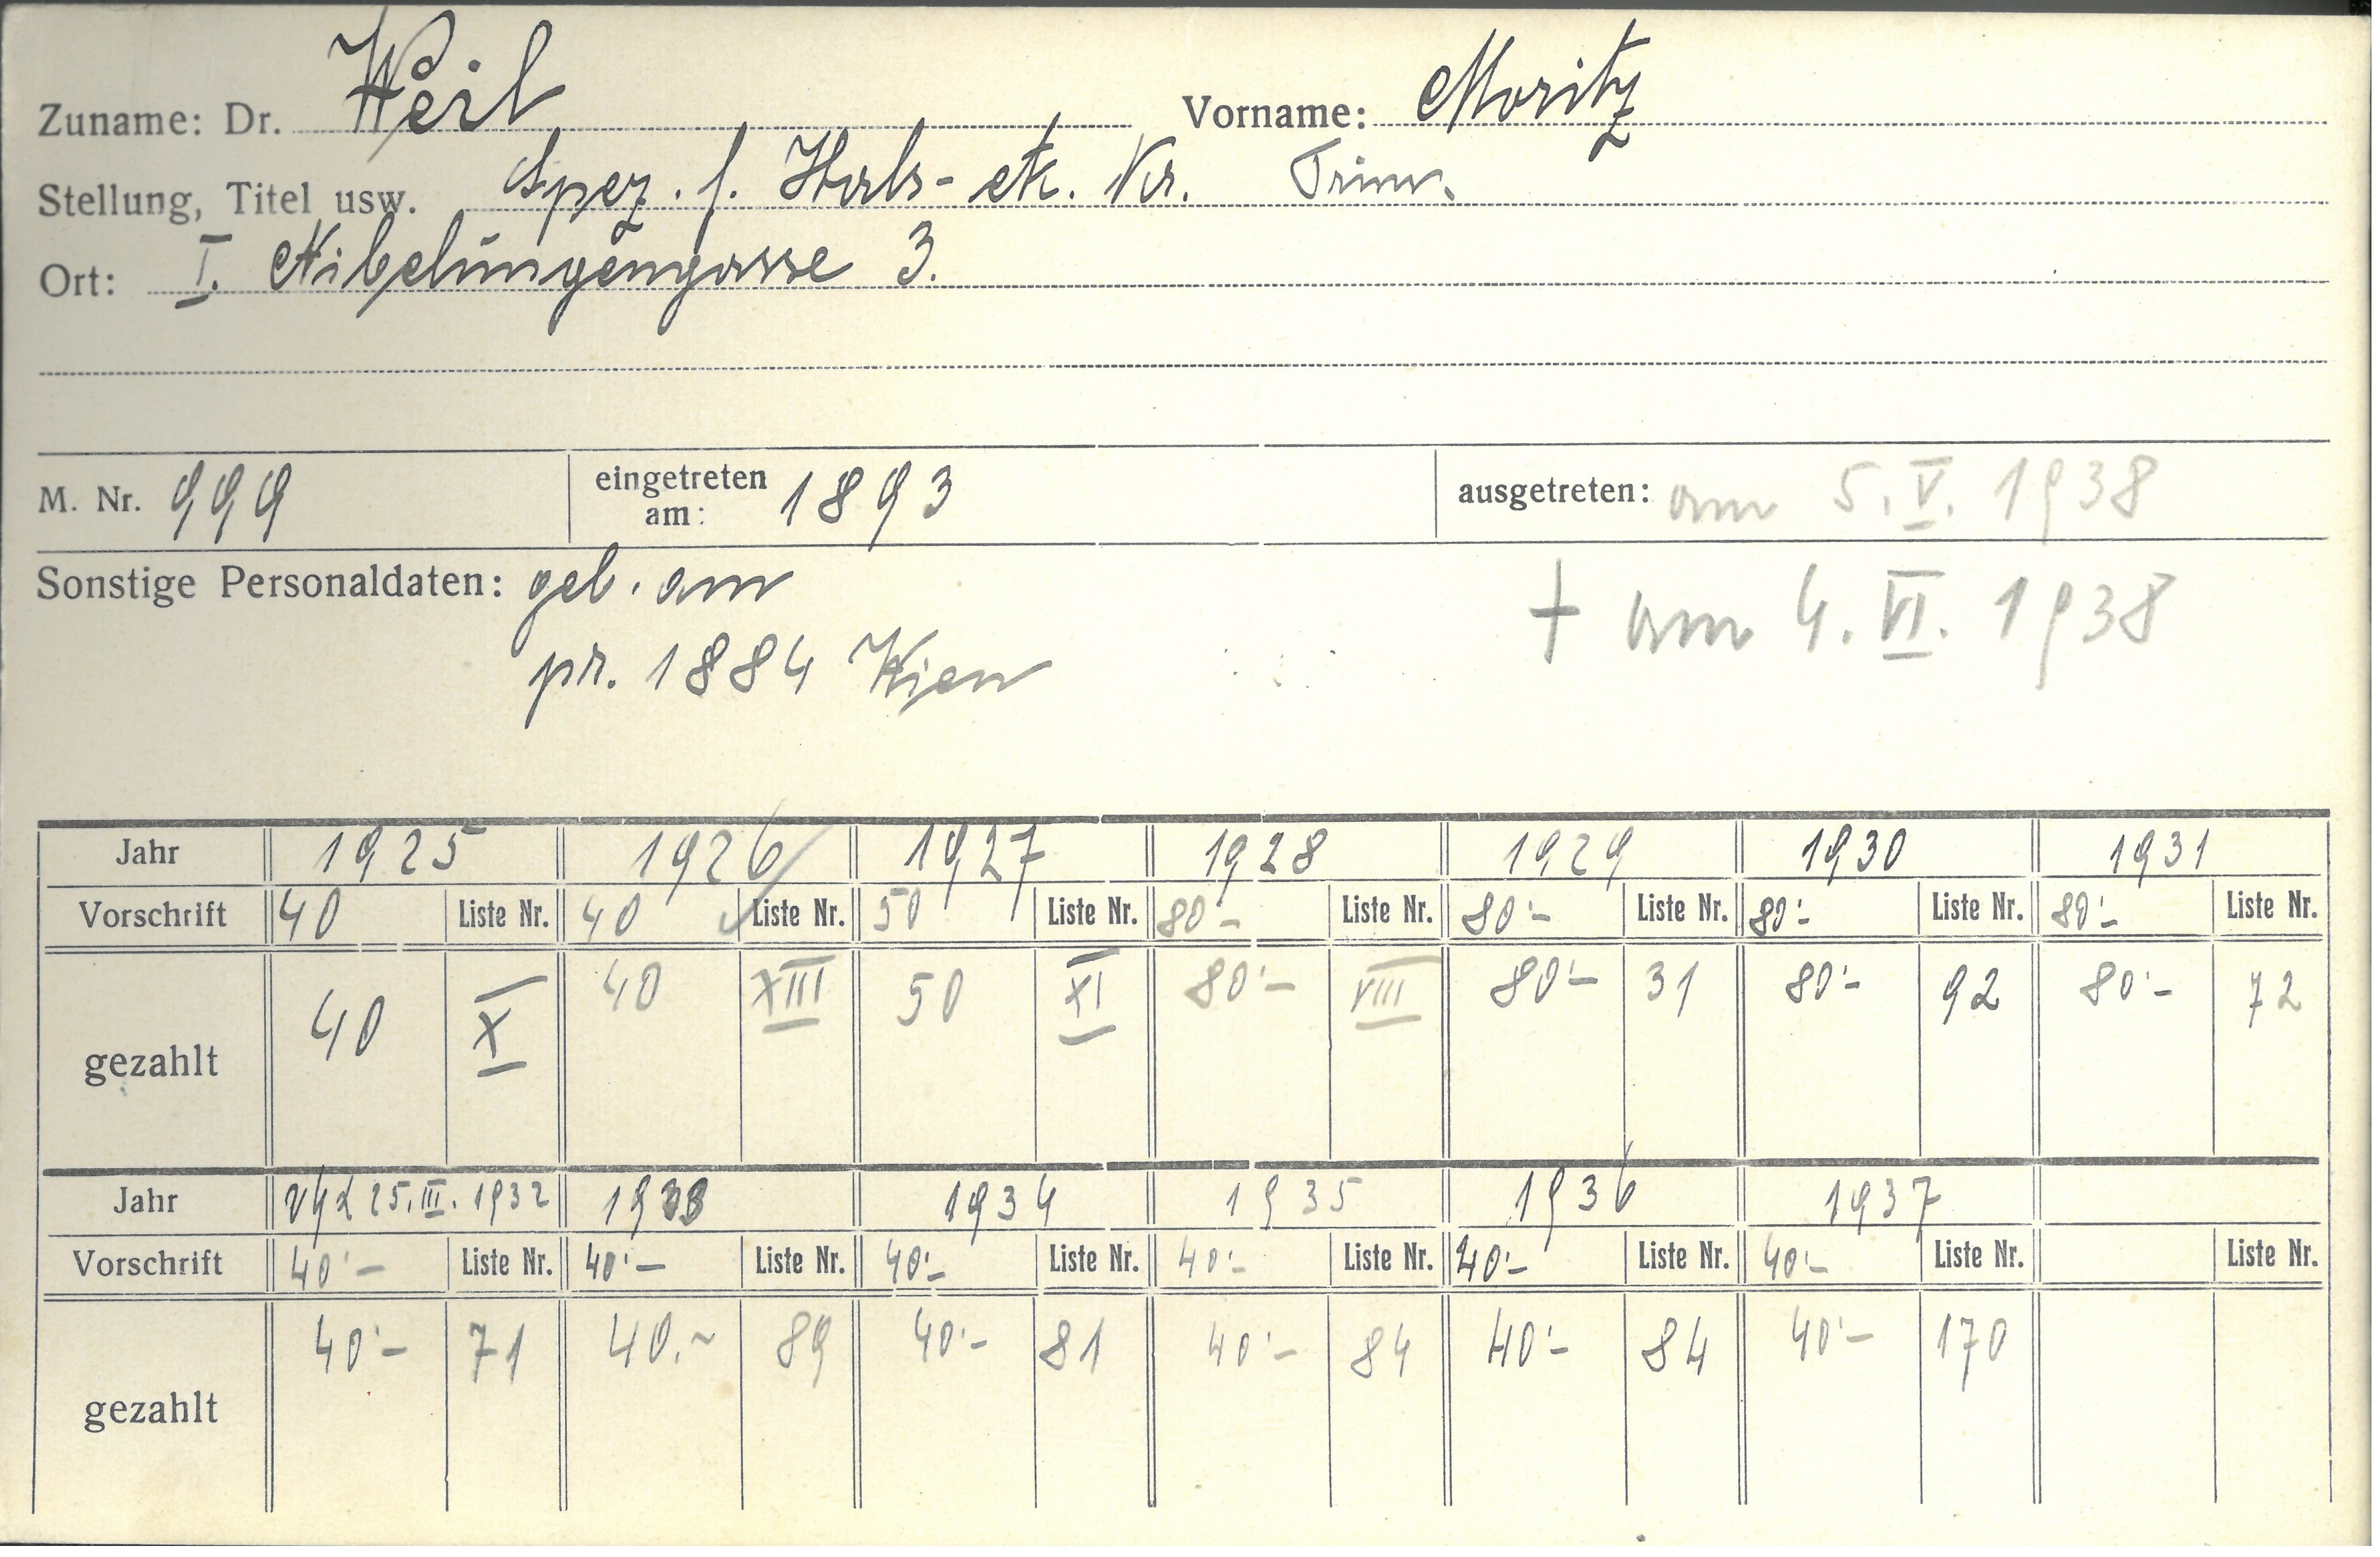 Zuname: Dr. Weil Vorname: Moritz
Stellung, Titel usw. Spez. f. Hals- etc. Kr. Prim.
Ort: I. Nibelungengasse 3.
M. Nr. 999 eingetreten am: 1893 ausgetreten: am 5. V. 1938
Sonstige Personaldaten: geb. am † am 4. VI. 1938
pr. 1884 Wien
Jahr 1925 1926 1927 1928 1929 1930 1931
Vorschrift 40 Liste Nr. 40 Liste Nr. 50 Liste Nr. 80.- Liste Nr. 80.- Liste Nr. 80.- Liste Nr. 80.- Liste Nr.
gezahlt 40 X 40 XIII 50 XI 80.- VIII 80.- 31 80.- 92 80.- 72
Jahr 25. III. 1932 1933 1934 1935 1936 1937
Vorschrift 40.- Liste Nr. 40.- Liste Nr. 40.- Liste Nr. 40.- Liste Nr. 40.- Liste Nr. 40.- Liste Nr. Liste Nr.
gezahlt 40.- 71 40.- 89 40.- 81 40.- 84 40.- 84 40.- 170